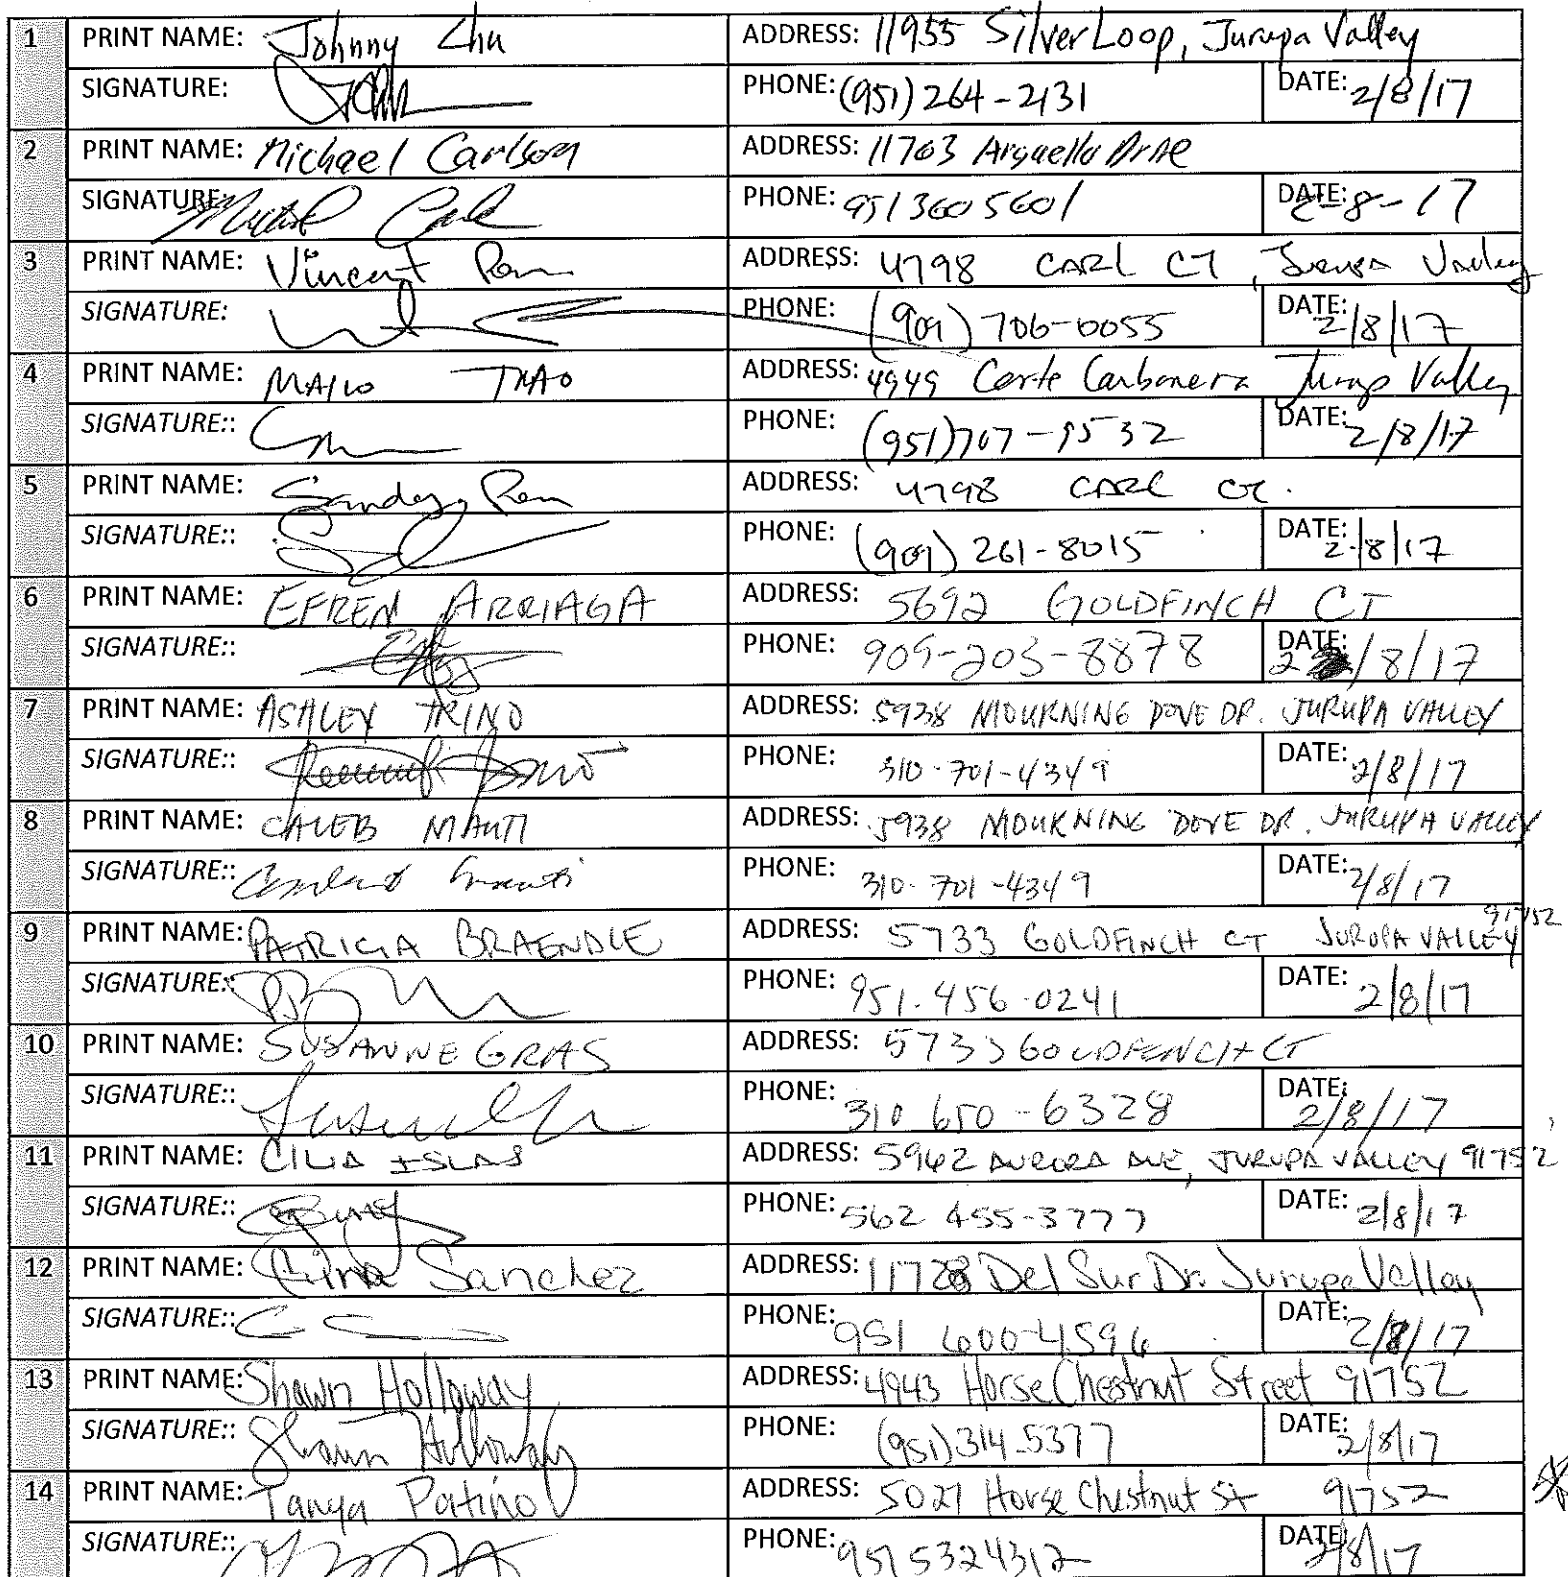 1 PRINT NAME: Johnny Chu ADDRESS: 11955 Silver Loop, Jurupa Valley
SIGNATURE: PHONE: (951) 264-2131 DATE: 2/8/17
2 PRINT NAME: Michael Carlson ADDRESS: 11763 Arguello Drive
SIGNATURE: PHONE: 951 360 5601 DATE: 2-8-17
3 PRINT NAME: Vincent Ram ADDRESS: 4798 CARL CT, Jurupa Valley
SIGNATURE: PHONE: (909) 706-0055 DATE: 2/8/17
4 PRINT NAME: THAO ADDRESS: 4949 Corte Carbonera Jurup Valley
SIGNATURE:: PHONE: (951) DATE: 2/8/17
5 PRINT NAME: Sandy Ram ADDRESS: 4798 CARL CT.
SIGNATURE:: PHONE: (909) 261-8015 DATE: 2/8/17
6 PRINT NAME: EFREN ARRIAGA ADDRESS: 5692 GOLDFINCH CT
SIGNATURE:: PHONE: 909-203-8878 DATE: 2/8/17
7 PRINT NAME: ASHLEY TRINO ADDRESS: 5938 MOURNING DOVE DR. JURUPA VALLEY
SIGNATURE:: PHONE: 310-701-4349 DATE: 2/8/17
8 PRINT NAME: CALEB MAUTI ADDRESS: 5938 MOURNING DOVE DR. JURUPA VALLEY
SIGNATURE:: PHONE: 310-701-4349 DATE: 2/8/17
9 PRINT NAME: PATRICIA BRAENDLE ADDRESS: 5733 GOLDFINCH CT JURUPA VALLEY 91752
SIGNATURE:: PHONE: 951.456.0241 DATE: 2/8/17
10 PRINT NAME: SUSANNE GRAS ADDRESS: 5733 GOLDFENCH CT
SIGNATURE:: PHONE: 310 650-6328 DATE: 2/8/17
11 PRINT NAME: CILIA ISLAS ADDRESS: 5962 AURORA AVE, JURUPA VALLEY 91752
SIGNATURE:: PHONE: 562 455-3777 DATE: 2/8/17
12 PRINT NAME: Sanchez ADDRESS: 11728 Del Sur Dr. Jurupa Valley
SIGNATURE:: PHONE: 951 600-4596 DATE: 2/8/17
13 PRINT NAME: Shawn Holloway ADDRESS: 4943 Horse Chestnut Street 91752
SIGNATURE:: Shawn Holloway PHONE: (951) 314-5377 DATE: 2/8/17
14 PRINT NAME: Tanya Patiño ADDRESS: 5027 Horse Chestnut St 91752
SIGNATURE:: PHONE: 951 5324312 DATE: 2/8/17